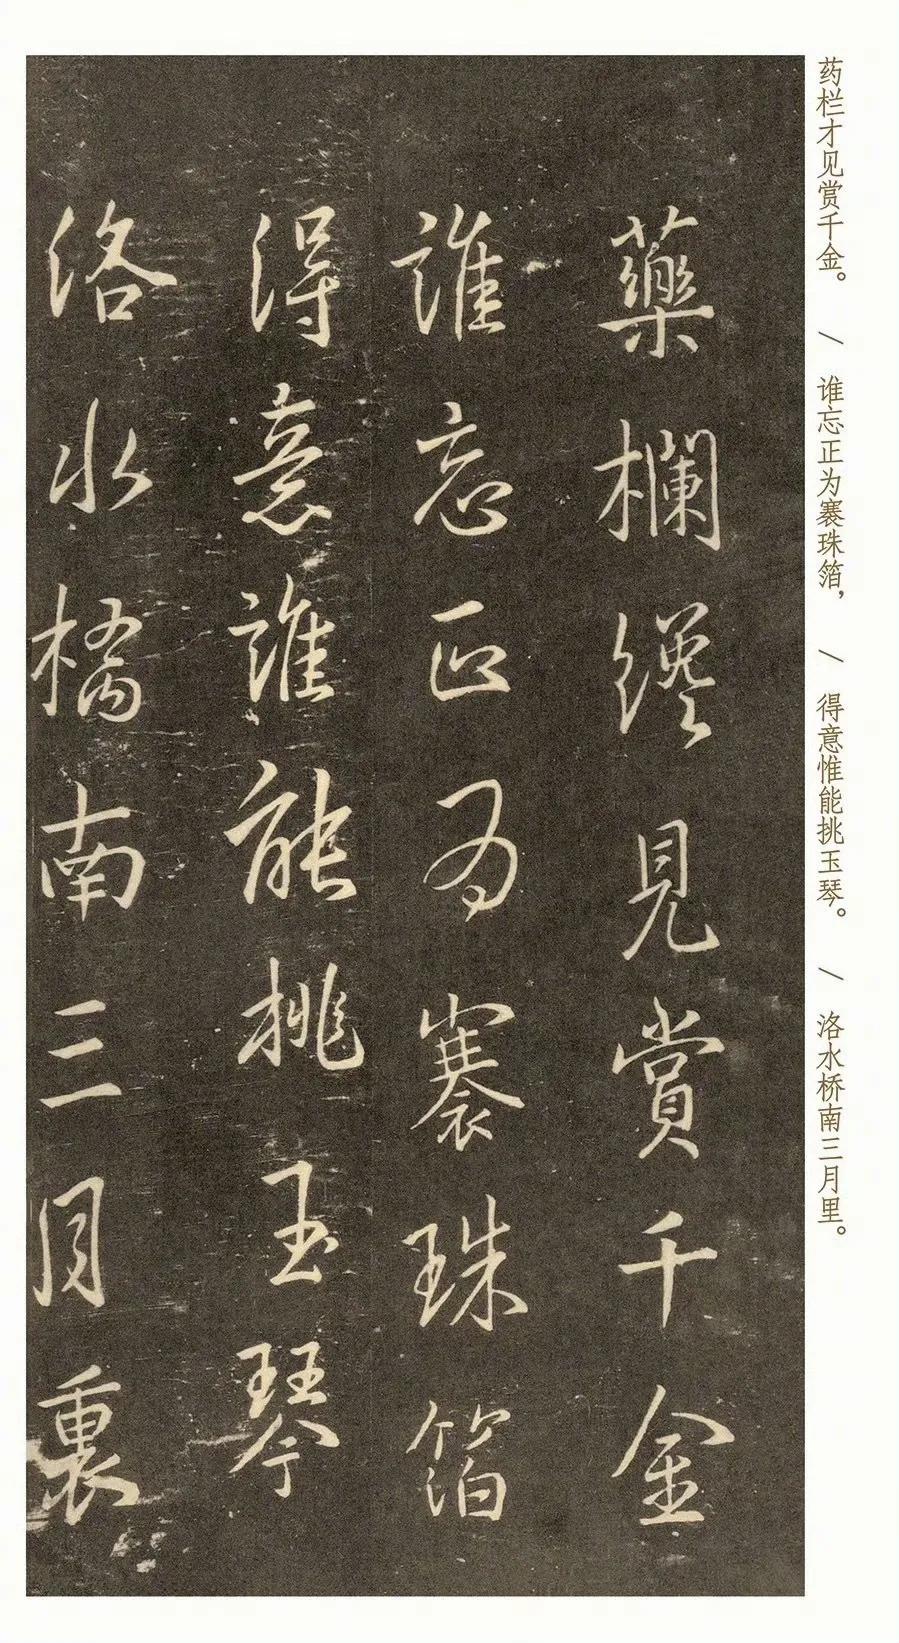 药栏才见赏千金。 / 谁忘正为褰珠箔, / 得意惟能挑玉琴。 / 洛水桥南三月里。
藥欄纔見賞千金
誰忘正为褰珠箔
得意誰能挑玉琴
洛水橋南三月裏